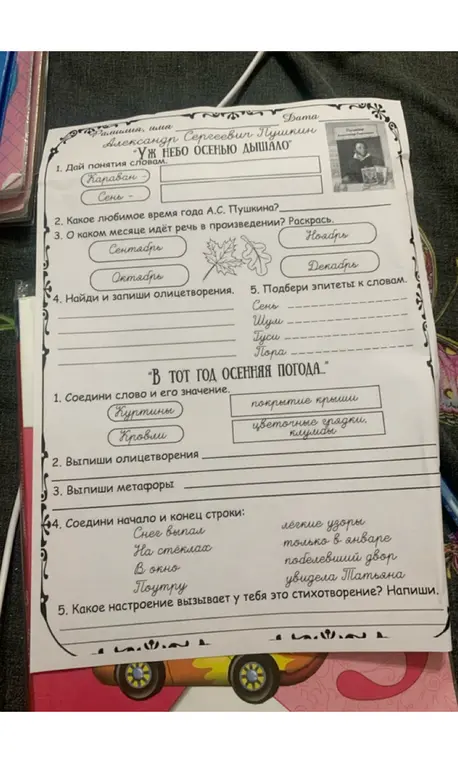 Фамилия, имя Дата
Александр Сергеевич Пушкин
"УЖ НЕБО ОСЕНЬЮ ДЫШАЛО"
1. Дай понятия словам.
Караван -
Сень -
2. Какое любимое время года А.С. Пушкина?
3. О каком месяце идёт речь в произведении? Раскрась.
Сентябрь
Ноябрь
Октябрь
Декабрь
4. Найди и запиши олицетворения.
5. Подбери эпитеты к словам.
Сень
Шум
Гуси
Пора
"В ТОТ ГОД ОСЕННЯЯ ПОГОДА..."
1. Соедини слово и его значение.
Куртины
покрытие крыши
Кровли
цветочные грядки,
клумбы
2. Выпиши олицетворения
3. Выпиши метафоры
4. Соедини начало и конец строки:
Снег выпал лёгкие узоры
На стёклах только в январе
В окно побелевший двор
Поутру увидела Татьяна
5. Какое настроение вызывает у тебя это стихотворение? Напиши.